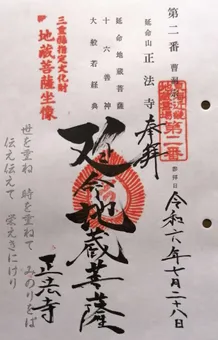 第二番
延命山 正法寺
参拝日 令和六年七月二十八日
奉拝
第二番
延命地蔵菩薩
十六善神
大般若経典
三重県指定文化財
地蔵菩薩坐像
延命地蔵菩薩
世を重ね 時を重ねて みのりをば
伝え伝えて 栄えきにけり
正法寺